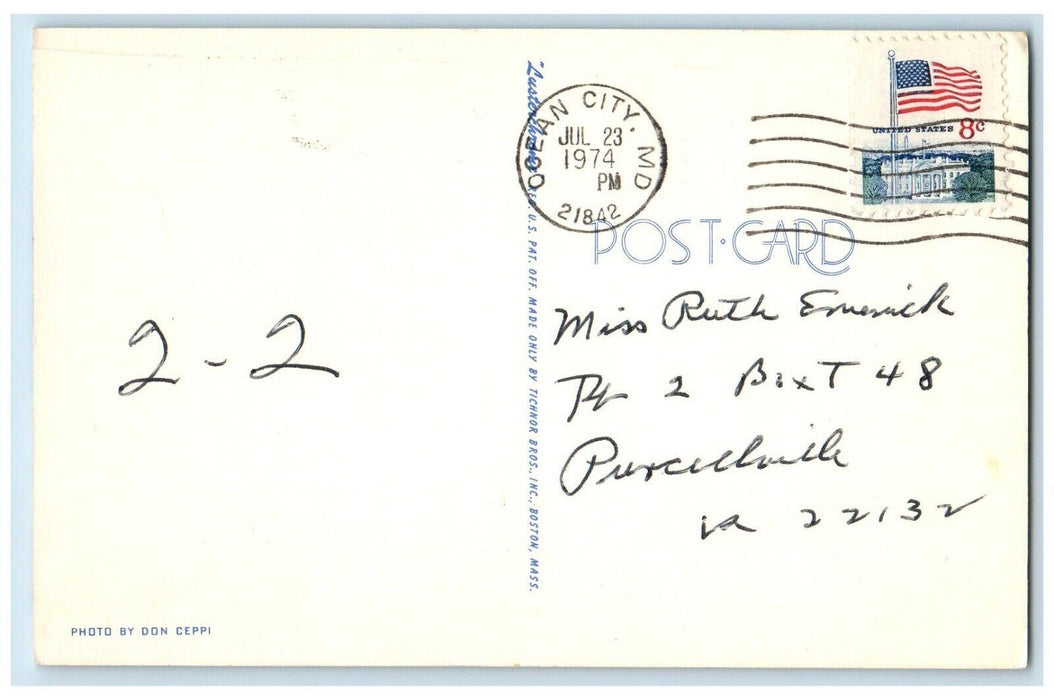 2 - 2
PHOTO BY DON CEPPI
"Lusterchrome" REG. U.S. PAT. OFF. MADE ONLY BY TICHNOR BROS., INC., BOSTON, MASS.
OCEAN CITY, MD
JUL 23
1974
PM
21842
UNITED STATES 8c
POST-CARD
Miss Ruth Emerick
2 Box T 48
Purcellville
VA 22132